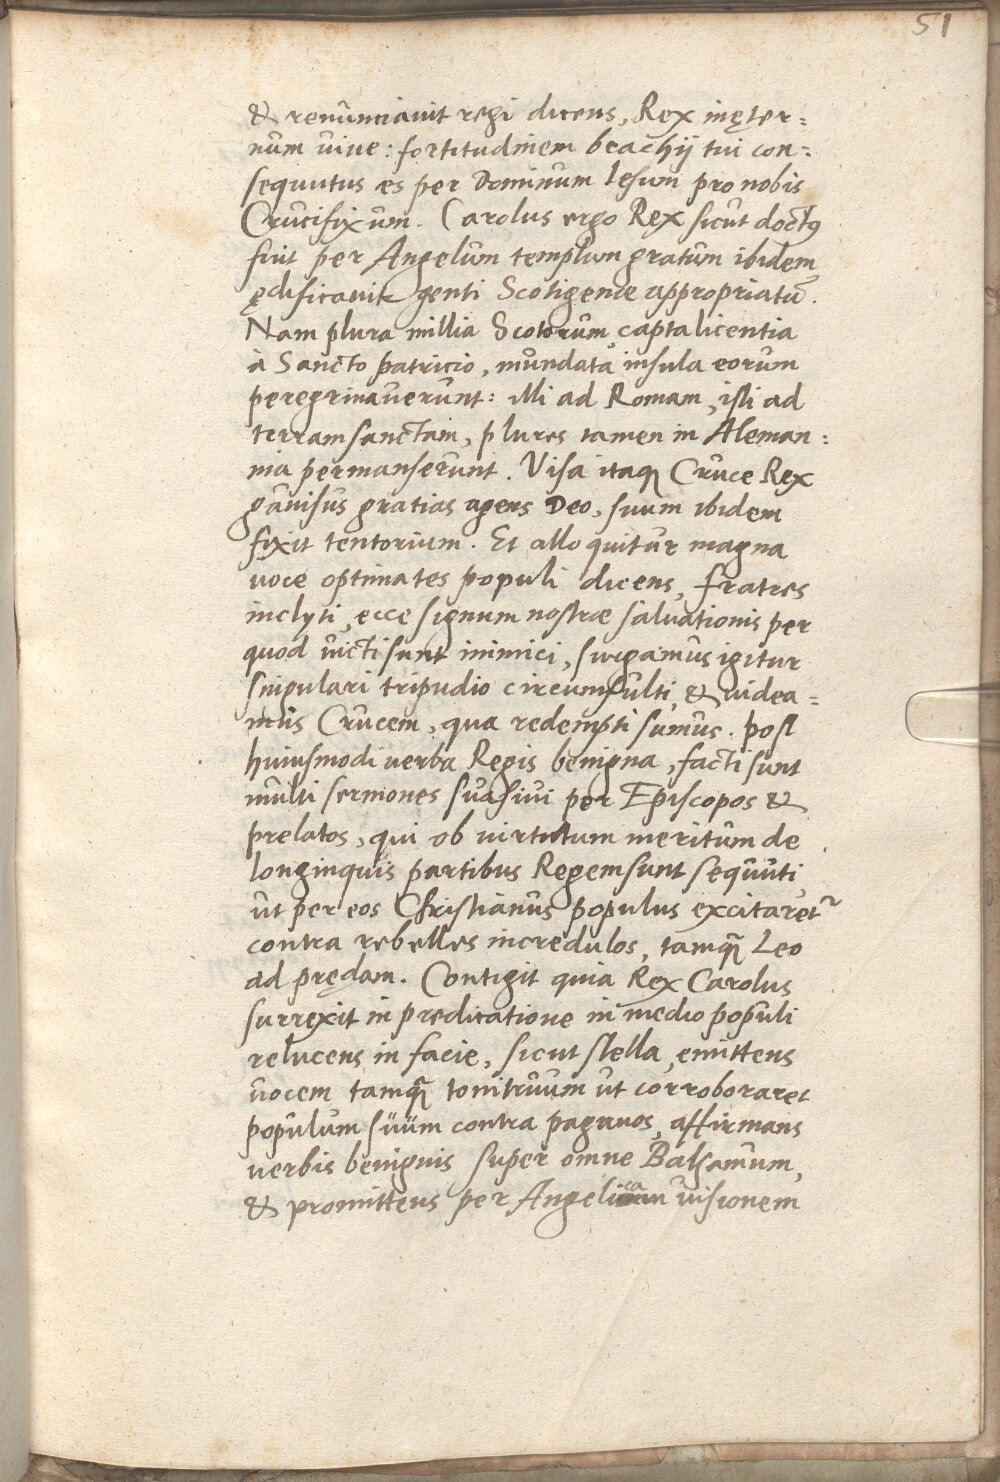 51
& renunciavit regi dicens, Rex inęter=
num vive: fortitudinem beachij tui con=
sequutus es per Dominum Iesum pro nobis
Crucifixum. Carolus ergo Rex sicut doctꝰ
fuit per Angelum templum gratum ibidem
ędificavit genti Scotigenæ appropriatū.
Nam plura millia Scotorum capta licentia
à Sancto patricio, mundata insula eorum
peregrinaverunt: illi ad Romam, isti ad
terram sanctam, plures tamen in Aleman=
nia permanserunt. Visa itaqꝫ Cruce Rex
gavisus gratias agens Deo, suum ibidem
fixit tentorium. Et alloquitur magna
voce optimates populi dicens, fratres
inclyti, ecce signum nostræ salvationis per
quod victi sunt inimici, surgamus igitur
singulari tripudio circumfulti, & videa=
mus Crucem, qua redempti sumus. post
huiusmodi verba Regis benigna, facti sunt
multi sermones suasivi per Episcopos &
prelatos, qui ob virtutum meritum de
longinquis partibus Regem sunt sequuti
ut per eos Christianus populus excitaretᷣ
contra rebelles incredulos, tamqꝫ Leo
ad prędam. Contigit quia Rex Carolus
surrexit in predicatione in medio populi
relucens in facie, sicut stella, emittens
vocem tamqꝫ tonitruum ut corroboraret
populum suum contra paganos, affirmans
verbis benignis super omne Balsamum,
& promittens per Angelicam visionem